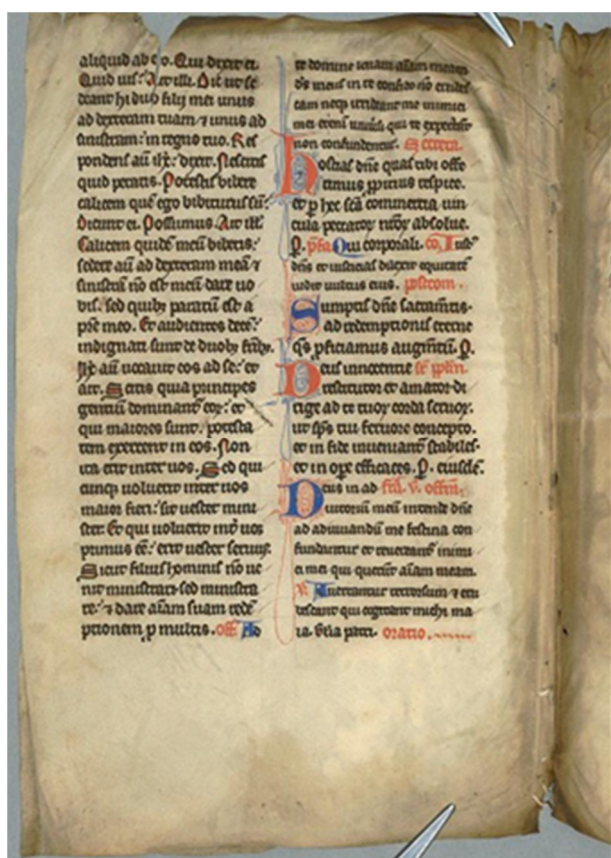 aliquid ab eo. Qui dixit ei.
Quid uis? Ait illi. Dic ut se
deant hi duo filij mei unus
ad dexteram tuam ⁊ unus ad
sinistram: in regno tuo. Res
pondens aū ih̄c: dixit. Nescitis
quid petatis. Potestis bibere
calicem quē ego bibiturus sū:
Dicunt ei. Possumus. Ait ill'.
Calicem quidē meū bibetis:
sedere aū ad dexteram meā ⁊
sinistrā nō est meū dare uo
bis. sed quibꝫ paratū est a
pr̄e meo. Et audientes decē:
indignati sunt de duobꝫ fr̄ibꝫ.
ih̄c aū uocauit eos ad se: et
ait. Scitis quia principes
gentiū dominant̄ eoꝝ: et
qui maiores sunt. potesta
tem exercent in eos. Non
ita erit inter uos. Sed qui
cunqꝫ uoluerit inter uos
maior fieri: sit uester mini
ster. Et qui uoluerit int̄ uos
primus eē: erit uester seruus.
Sicut filius hominis nō ue
nit ministrari sed ministra
re: ⁊ dare aīam suam redē
ptionem ꝓ multis. off̄. Ad
te domine leuaui aīam meam
d̄s meus in te confido nō erubes
cam neqꝫ irrideant me inimici
mei etenī uniūsi qui te expectāt
non confundentur. Secreta.
Hostias dn̄e quas tibi offe
rimus ꝓpitius respice.
et ꝑ hec sc̄a commercia uin
cula peccatoꝝ nr̄oꝝ absolue.
P. p̄fa Qui corporali. co. Iust᷒
dn̄s et iusticias dilexit equitatē
uidit uultus eius. postcom.
Sumptis dn̄e sacram̄tis.
ad redemptionis eterne
q̄s ꝓficiamus augm̄tū. P.
Deus innocentie sr̄ pplm̄.
restitutor et amator di
rige ad te tuoꝝ corda seruoꝝ.
ut sp̄s tui feruore concepto.
et in fide inueniant̄ stabiles.
et in oꝑe efficaces. P. eiusdē.
Deus in ad fr̄a. v. offm̄.
iutoriū meū intende dn̄e
ad adiuuandū me festina con
fundantur et reuereant̄ inimi
ci mei qui querūt aīam meam.
V. Auertantur retrorsum ⁊ eru
bescant qui cogitant michi ma
la. Gl'ia patri. oratio.